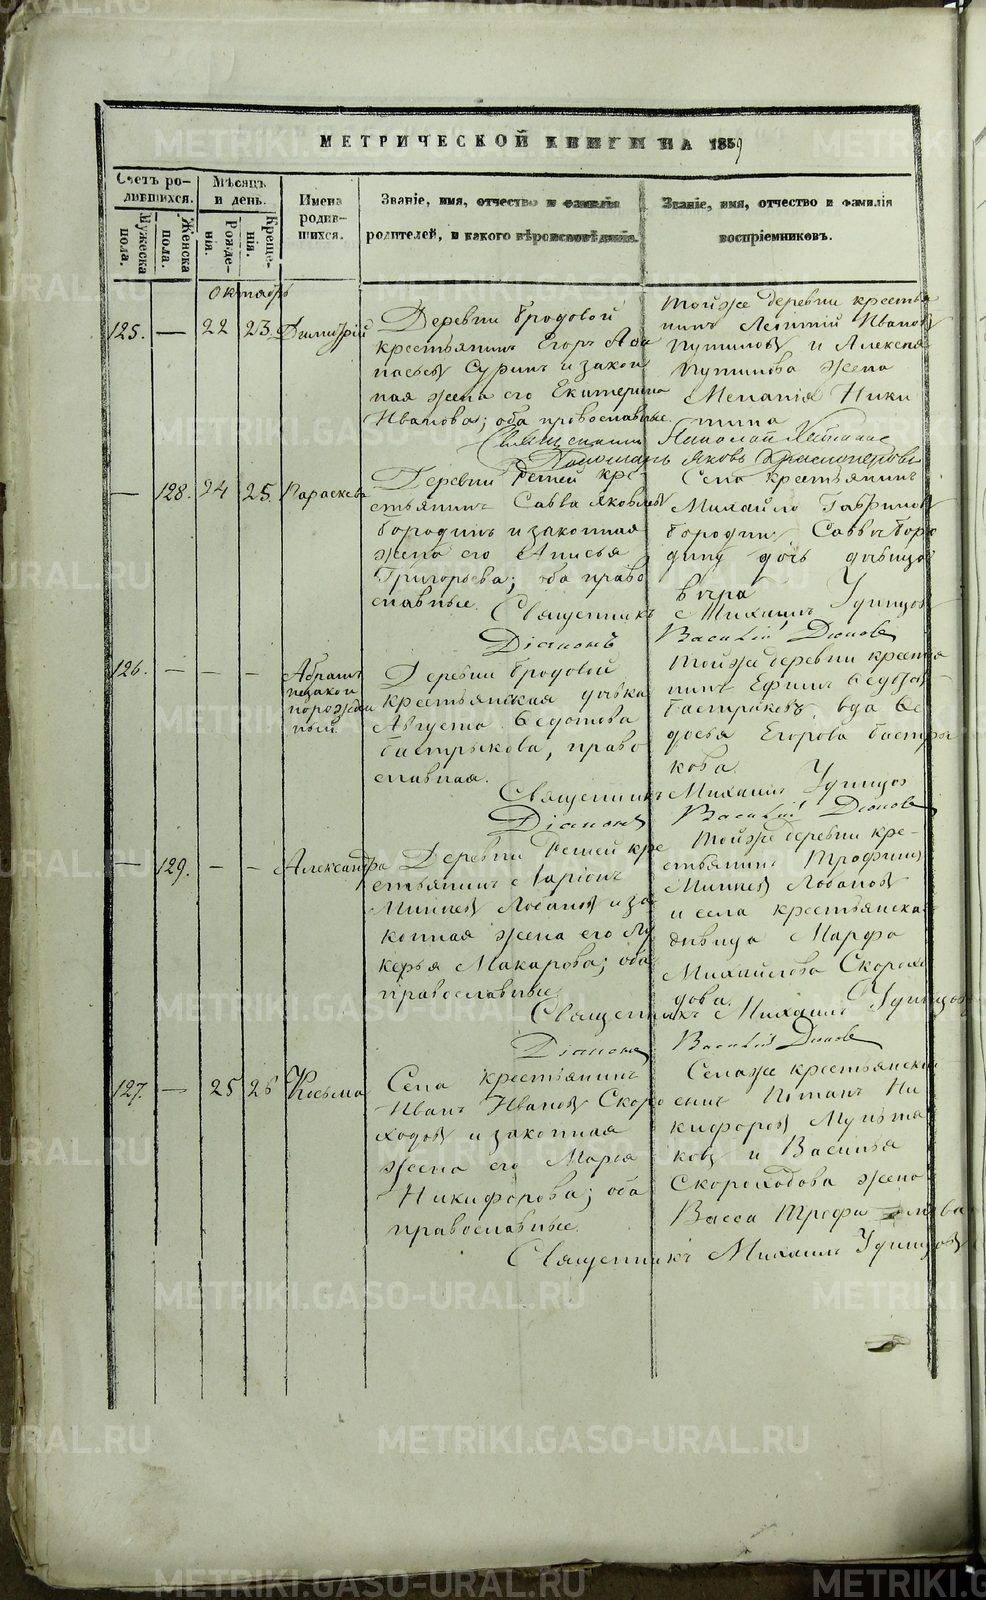 МЕТРИЧЕСКОЙ КНИГИ НА 1859
Счетъ родившихся.
Мужеска пола.
Женска пола.
Мѣсяцъ и день.
Рожденія.
Крещенія.
Имена родившихся.
Званіе, имя, отчество и фамилія
родителей, и какого вѣроисповѣданія.
Званіе, имя, отчество и фамилія
воспріемниковъ.
Октябрь
125. — 22 23 Димитрій
Деревни Бродовой
крестьянинъ Егоръ Афа
насьевъ Суринъ и закон
ная жена его Екатерина
Иванова; оба православные.
тойже деревни крестья
нинъ Леонтій Ивановъ
Путиловъ и Алексѣя
Путилова жена
Меланія Ники
тина
Священникъ Николай
Пономарь Яковъ
— 128. 24 25. Параскева
Деревни Решей кре
стьянинъ Савва Яковлевъ
Бородинъ и законная
жена его Анисья
Григорьева; оба право
славные.
Села крестьянинъ
Михайло Гавриловъ
Бородин Саввы Боро
дину дочь дѣвица
Священникъ Михаилъ Удинцов
Діаконъ Василій Дюков
126. — — — Абрамъ
незакон
норожден
ный
Деревни Бродовой
крестьянская дѣвка
Августа Федотова
Бастрыкова, право
славная.
тойже деревни крестья
нинъ Ефимъ Федотов
Бастриковъ, вда Фе
досья Егорова Бастры
кова.
Священникъ Михаилъ Удинцов
Діаконъ Василій Дюков
— 129. — — Александра
Деревни Решей кре
стьянинъ Ларіонъ
Миннев Лобанов и за
конная жена его Лу
керья Макарова; оба
православные
тойже деревни кре-
стьянинъ Трофимъ
Миннев Лобанов
и села крестьянска
дѣвица Марфа
Михайлова Скорохо
дова.
Священникъ Михаилъ Удинцов
Діаконъ Василій Дюков
127. — 25 26 Косьма
Села крестьянинъ
Иванъ Ивановъ Скоро
ходов и законная
жена его Марья
Никифорова; оба
православные.
Селаже крестьянскій
сынъ Потапъ Ни
кифоров Мульта
ков и Василья
Скороходова жена
Васса Трофимова
Священникъ Михаилъ Удинцов
METRIKI.GASO-URAL.RU